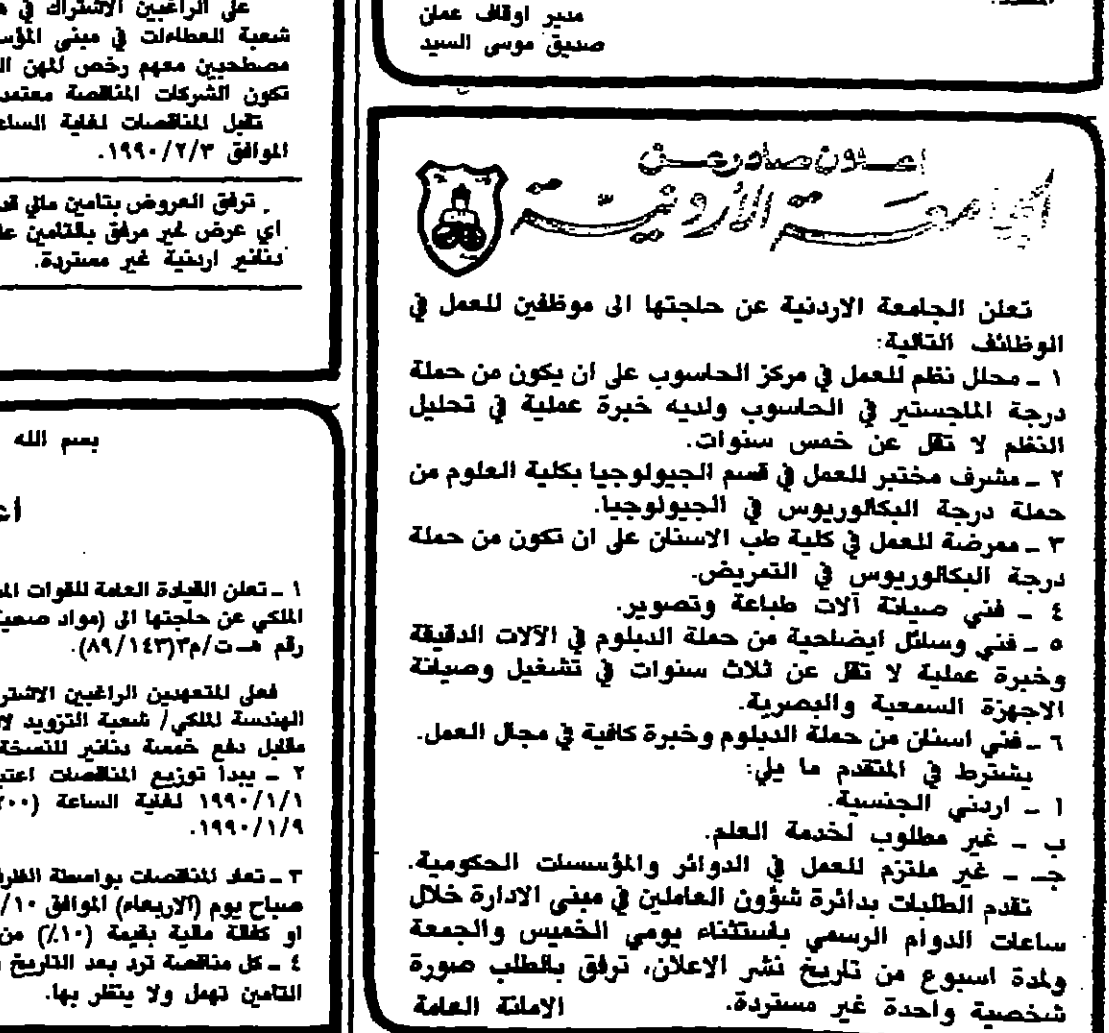 المتعهد.
مدير اوقاف عمان
صديق موسى السيد
اعلان صادر عن
الجامعة الأردنية
تعلن الجامعة الاردنية عن حاجتها الى موظفين للعمل في
الوظائف التالية:
١ - محلل نظم للعمل في مركز الحاسوب على ان يكون من حملة
درجة الماجستير في الحاسوب ولديه خبرة عملية في تحليل
النظم لا تقل عن خمس سنوات.
٢ - مشرف مختبر للعمل في قسم الجيولوجيا بكلية العلوم من
حملة درجة البكالوريوس في الجيولوجيا.
٣ - ممرضة للعمل في كلية طب الاسنان على ان تكون من حملة
درجة البكالوريوس في التمريض.
٤ - فني صيانة آلات طباعة وتصوير.
٥ - فني وسائل ايضاحية من حملة الدبلوم في الآلات الدقيقة
وخبرة عملية لا تقل عن ثلاث سنوات في تشغيل وصيانة
الاجهزة السمعية والبصرية.
٦ - فني اسنان من حملة الدبلوم وخبرة كافية في مجال العمل.
يشترط في المتقدم ما يلي:
أ - اردني الجنسية.
ب - غير مطلوب لخدمة العلم.
جـ - غير ملتزم للعمل في الدوائر والمؤسسات الحكومية.
تقدم الطلبات بدائرة شؤون العاملين في مبنى الادارة خلال
ساعات الدوام الرسمي باستثناء يومي الخميس والجمعة
ولمدة اسبوع من تاريخ نشر الاعلان، ترفق بالطلب صورة
شخصية واحدة غير مستردة. الامانة العامة
على الراغبين الاشتراك في
شعبة العطاءات في مبنى
مصطحبين معهم رخص المهن
تكون الشركات المناقصة
تقبل المناقصات لغاية
الموافق ١٩٩٠/٢/٣.
ترفق العروض بتامين مالي
اي عرض غير مرفق بالتامين
دنانير اردنية غير مستردة.
بسم الله
١ - تعلن القيادة العامة للقوات
الملكي عن حاجتها الى (مواد
رقم هـ ت/م٣(٨٩/١٤٣).
فعلى المتعهدين الراغبين
الهندسة الملكي/ شعبة التزويد
مقابل دفع خمسة دنانير للنسخة
٢ - يبدأ توزيع المناقصات
١٩٩٠/١/١ لغاية الساعة
١٩٩٠/١/٩.
٣ - تعاد المناقصات بواسطة
صباح يوم (الاربعاء) الموافق
او كفالة مالية بقيمة (١٠٪) من
٤ - كل مناقصة ترد بعد التاريخ
التامين تهمل ولا ينظر بها.